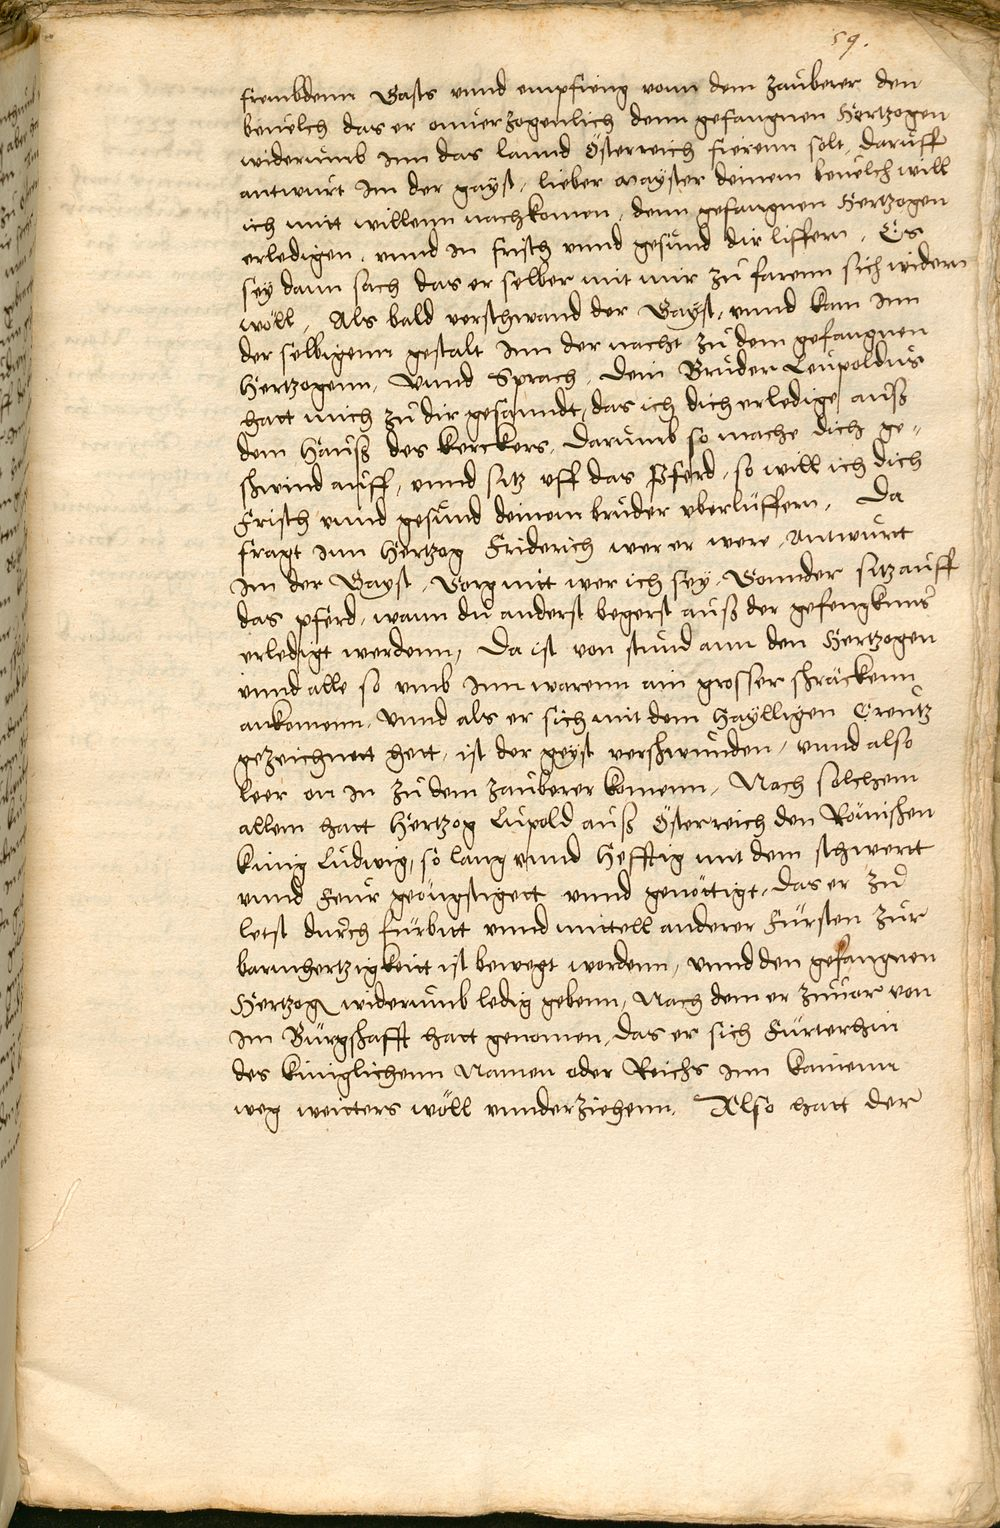 59.
frembdenn Gasts vnnd empfieng vonn dem zauberer den
beuelch das er onuerzogenlich denn gefangnen Hertzogen
widerumb inn das lannd Österreich fierenn solt, daruff
antwurt im der gayst, lieber mayster deinem beuelch will
ich mitt willenn nachkomen, denn gefangnen Hertzogen
erledigen, vnnd in frisch vnnd gesund dir liffern, Es
sey dann sach das er selber mit mir zu farenn sich widern
wöll, Als bald verschwand der Gayst, vnnd kam inn
der selbigenn gestalt inn der nacht zu dem gefangnen
Hertzogenn, Vnnd Sprach, Dein Bruder Leupoldus
hatt mich zu dir gesanndt, das ich dich erledige auß
dem Hauß des kerckers, Darumb so mache dich ge¬
schwind auff, vnnd sitz vff das Pferd, so will ich dich
Frisch vnnd gesund deinem bruder vberlüffern, Da
fragt inn Hertzog Friderich wer er were, Antwurtt
im der Gayst, Sorg nitt wer ich sey, Sonnder sitz auff
das pferd, wann du anderst begerst auß der gefengknus
erledigt werdenn, Da ist von stund ann den Hertzogen
vnnd alle so vmb inn warenn ain grosser schräckenn
ankomenn, Vnnd als er sich mit dem Haylligen Creutz
gezeichnett hett, ist der geyst verschwunden, vnnd also
leer on in zu dem zauberer komenn, Nach solchem
allem hatt Hertzog Lupold auß Österreich den Römischen
kunig Ludwig, so lang vnnd Hefftig mit dem schwertt
vnnd Feur geöngstigett vnnd genöttigt, das er zu
letst durch fürbitt vnnd mittell anderer Fürsten zur
barmhertzigkeitt ist bewegt wordenn, vnnd den gefangnen
Hertzog widerumb ledig gebenn, Nach dem er zuuor von
im Bürgschafft hatt genomen, das er sich Fürterhin
des kiniglichenn Namen oder Reichs inn kainenn
weg weitters wöll vnnderziehenn. Also hatt der